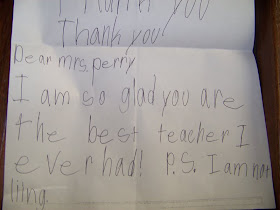 Thank you!
Dear mrs. perry
I am so glad you are
the best teacher I
ever had! P.S. I am not
liing.